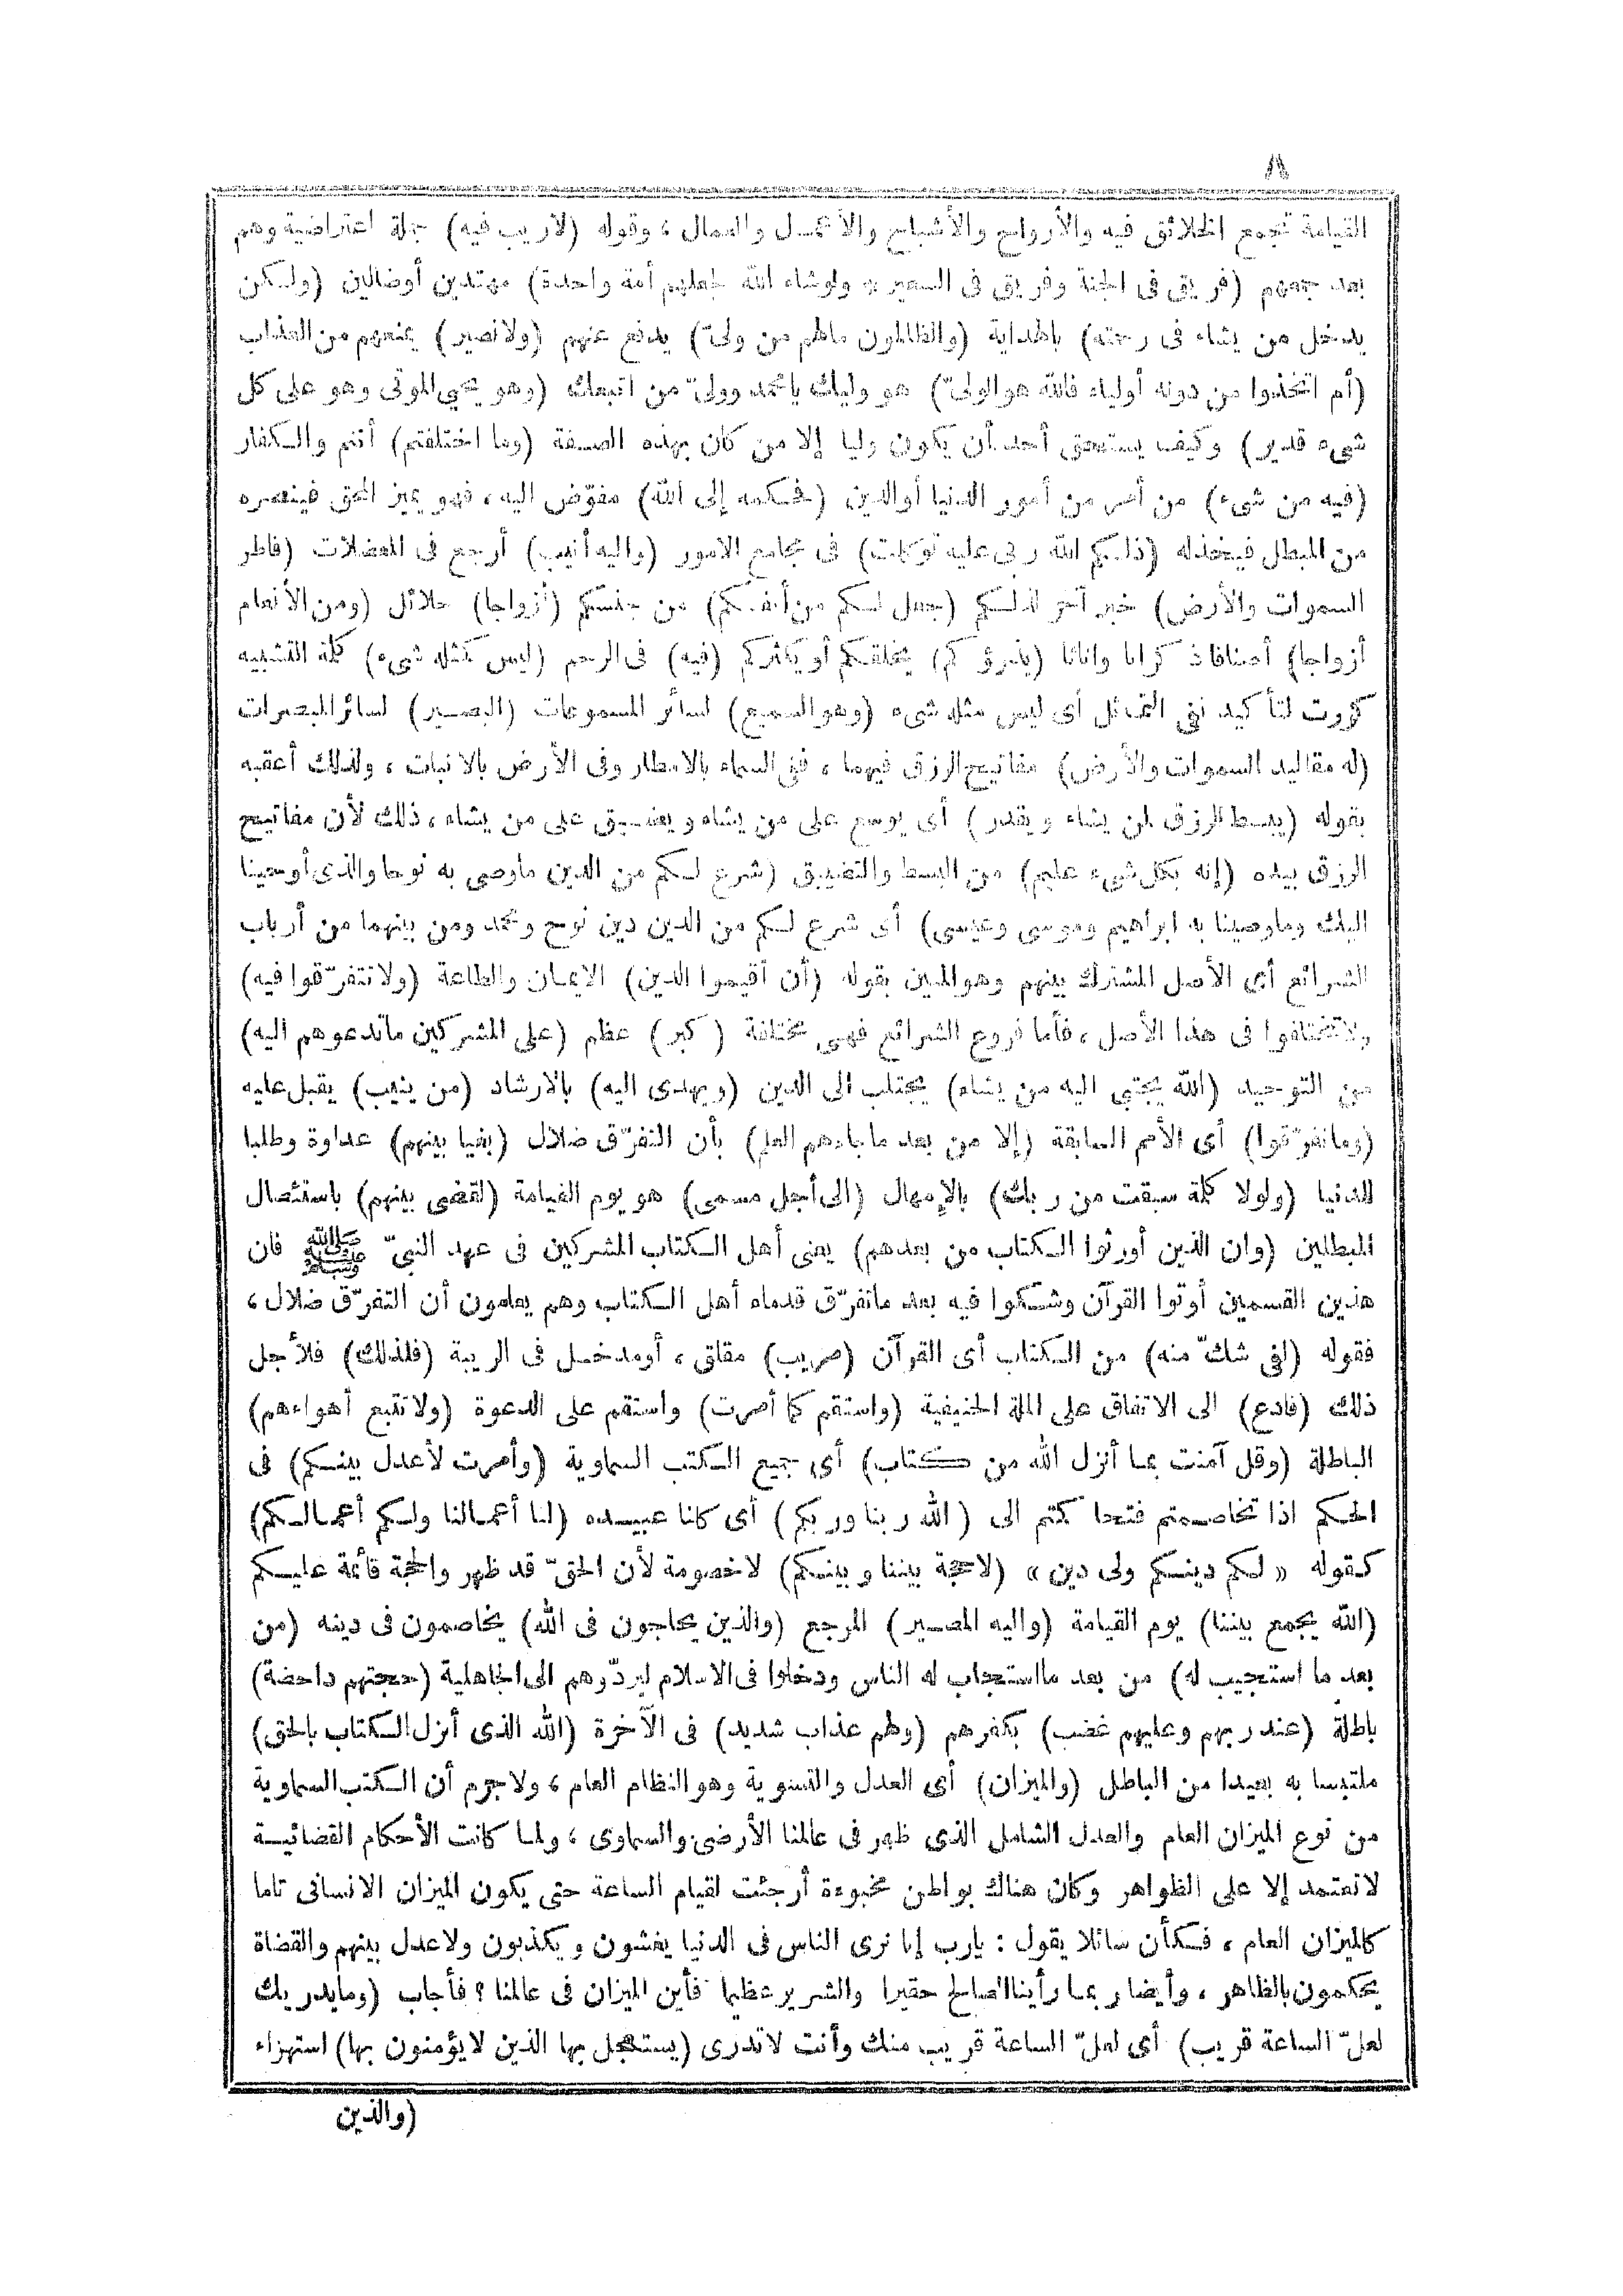 القيامة تجمع الخلائق فيه والأرواح والأشباح والأعمال والعمال ، وقوله (لاريب فيه) جملة اعتراضية وهم
بعد جمعهم (فريق فى الجنة وفريق فى السعير * ولوشاء الله لجعلهم أمة واحدة) مهتدين أوضالين (ولكن
يدخل من يشاء فى رحمته) بالهداية (والظالمون مالهم من ولىّ) يدفع عنهم (ولانصير) يمنعهم من العذاب
(أم اتخذوا من دونه أولياء فالله هوالولىّ) هو وليك يامحمد وولىّ من اتبعك (وهو يحيي الموتى وهو على كل
شىء قدير) وكيف يستحق أحد أن يكون وليا إلا من كان بهذه الصفة (وما اختلفتم) أنتم والكفار
(فيه من شىء) من أمر من أمور الدنيا أوالدين (فحكمه إلى الله) مفوّض اليه ، فهو يميز المحق فينصره
من المبطل فيخذله (ذلكم الله ربى عليه توكلت) فى مجامع الامور (واليه أنيب) أرجع فى المعضلات (فاطر
السموات والأرض) خبر آخر لذلكم (جعل لكم من أنفسكم) من جنسكم (أزواجا) حلائل (ومن الأنعام
أزواجا) أصنافا ذكرانا وإناثا (يذرؤكم) يخلقكم أو يكثركم (فيه) فى الرحم (ليس كمثله شىء) كلمة التشبيه
كررت لتأكيد نفى التماثل أى ليس مثله شىء (وهو السميع) لسائر المسموعات (البصير) لسائر المبصرات
(له مقاليد السموات والأرض) مفاتيح الرزق فيهما ، ففى السماء بالامطار وفى الأرض بالانبات ، ولذلك أعقبه
بقوله (يبسط الرزق لمن يشاء ويقدر) أى يوسع على من يشاء ويضيق على من يشاء ، ذلك لأن مفاتيح
الرزق بيده (إنه بكل شىء عليم) من البسط والتضييق (شرع لكم من الدين ماوصى به نوحا والذى أوحينا
اليك وماوصينا به ابراهيم وموسى وعيسى) أى شرع لكم من الدين دين نوح ومحمد ومن بينهما من أرباب
الشرائع أى الأصل المشترك بينهم وهوالمبين بقوله (أن أقيموا الدين) الايمان والطاعة (ولاتتفرّقوا فيه)
ولاتختلفوا فى هذا الأصل ، فأما فروع الشرائع فهى مختلفة (كبر) عظم (على المشركين ماتدعوهم اليه)
من التوحيد (الله يجتبى اليه من يشاء) يجتلب الى الدين (ويهدى اليه) بالارشاد (من ينيب) يقبل عليه
(وماتفرّقوا) أى الأمم السابقة (إلا من بعد ماجاءهم العلم) بأن التفرّق ضلال (بغيا بينهم) عداوة وطلبا
للدنيا (ولولا كلمة سبقت من ربك) بالإمهال (الى أجل مسمى) هو يوم القيامة (لقضى بينهم) باستئصال
المبطلين (وان الذين أورثوا الكتاب من بعدهم) يعنى أهل الكتاب المشركين فى عهد النبىّ ﷺ فان
هذين القسمين أوتوا القرآن وشكوا فيه بعد ماتفرّق قدماء أهل الكتاب وهم يعلمون أن التفرّق ضلال ،
فقوله (لفى شكّ منه) من الكتاب أى القرآن (مريب) مقلق ، أومدخل فى الريبة (فلذلك) فلأجل
ذلك (فادع) الى الاتفاق على الملة الحنيفية (واستقم كما أمرت) واستقم على الدعوة (ولاتتبع أهواءهم)
الباطلة (وقل آمنت بما أنزل الله من كتاب) أى جميع الكتب السماوية (وأمرت لأعدل بينكم) فى
الحكم اذا تخاصمتم فتحاكمتم الى (الله ربنا وربكم) أى كلنا عبيده (لنا أعمالنا ولكم أعمالكم)
كقوله « لكم دينكم ولى دين » (لاحجة بيننا وبينكم) لاخصومة لأن الحقّ قد ظهر والحجة قائمة عليكم
(الله يجمع بيننا) يوم القيامة (واليه المصير) المرجع (والذين يحاجون فى الله) يخاصمون فى دينه (من
بعد ما استجيب له) من بعد مااستجاب له الناس ودخلوا فى الاسلام ليردّوهم الى الجاهلية (حجتهم داحضة)
باطلة (عند ربهم وعليهم غضب) بكفرهم (ولهم عذاب شديد) فى الآخرة (الله الذى أنزل الكتاب بالحق)
ملتبسا به بعيدا من الباطل (والميزان) أى العدل والتسوية وهو النظام العام ، ولاجرم أن الكتب السماوية
من نوع الميزان العام والعدل الشامل الذى ظهر فى عالمنا الأرضى والسماوى ، ولما كانت الأحكام القضائية
لاتعتمد إلا على الظواهر وكان هناك بواطن مخبوءة أرجئت لقيام الساعة حتى يكون الميزان الانسانى تاما
كالميزان العام ، فكأن سائلا يقول : يارب إنا نرى الناس فى الدنيا يغشون ويكذبون ولاعدل بينهم والقضاة
يحكمون بالظاهر ، وأيضا ربما رأينا الصالح حقيرا والشرير عظيما فأين الميزان فى عالمنا ؟ فأجاب (ومايدريك
لعلّ الساعة قريب) أى لعلّ الساعة قريب منك وأنت لاتدرى (يستعجل بها الذين لايؤمنون بها) استهزاء
(والذين